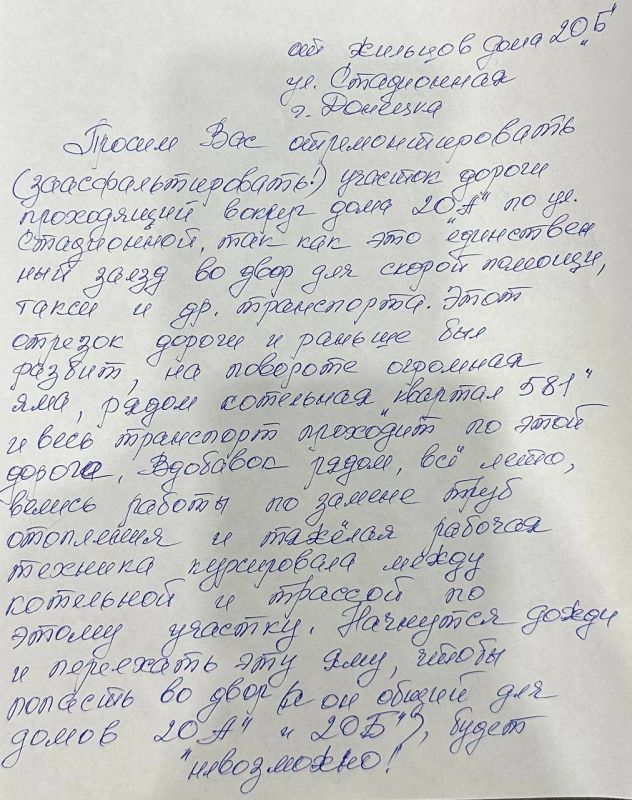 от жильцов дома 20„Б"
ул. Стадионная
г. Донецка
Просим Вас отремонтировать
(заасфальтировать!) участок дороги
проходящий вокруг дома 20„А" по ул.
Стадионной, так как это единствен
ный заезд во двор для скорой помощи,
такси и др. транспорта. Этот
отрезок дороги и раньше был
разбит, на повороте огромная
яма, рядом котельная „квартал 581"
и весь транспорт проходит по этой
дороге. Вдобавок рядом, всё лето,
велись работы по замене труб
отопления и тяжёлая рабочая
техника курсировала между
котельной и трассой по
этому участку. Начнутся дожди
и переехать эту яму, чтобы
попасть во двор (а он общий для
домов 20„А" и 20„Б"), будет
невозможно!